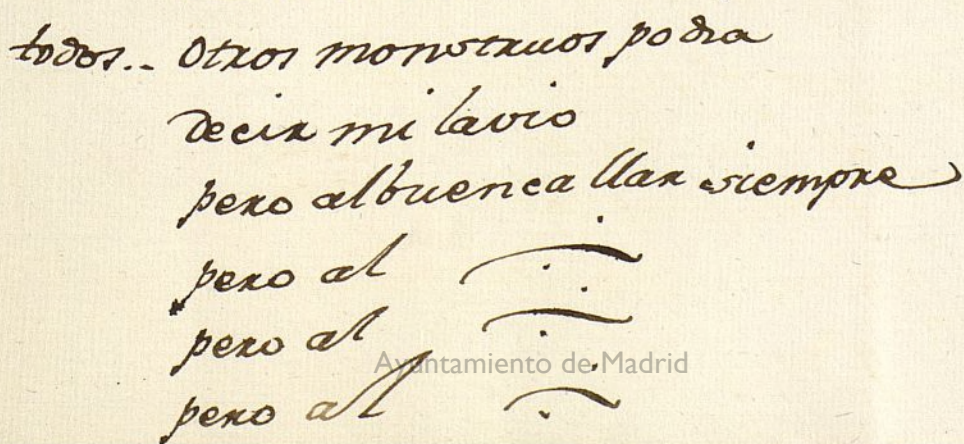 todos.. Otros monstruos podra
decir mi lavio
pero al buen callar siempre
pero al
pero al
Ayuntamiento de Madrid
pero al